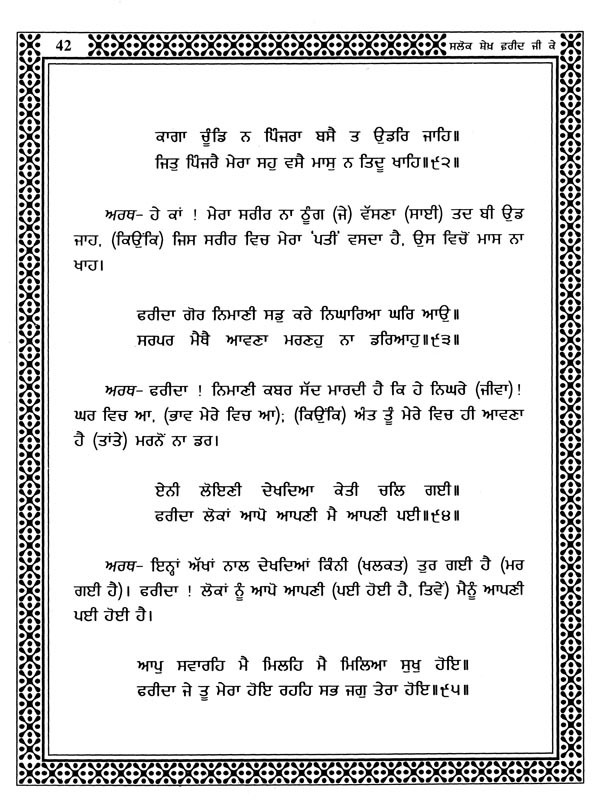 42
ਸਲੋਕ ਸ਼ੇਖ਼ ਫ਼ਰੀਦ ਜੀ ਕੇ
ਕਾਗਾ ਚੂੰਡਿ ਨ ਪਿੰਜਰਾ ਬਸੈ ਤ ਉਡਰਿ ਜਾਹਿ॥
ਜਿਤੁ ਪਿੰਜਰੈ ਮੇਰਾ ਸਹੁ ਵਸੈ ਮਾਸੁ ਨ ਤਿਦੂ ਖਾਹਿ॥੯੨॥
ਅਰਥ- ਹੇ ਕਾਂ ! ਮੇਰਾ ਸਰੀਰ ਨਾ ਠੂੰਗ (ਜੇ) ਵੱਸਣਾ (ਸਾਈ) ਤਦ ਬੀ ਉਡ
ਜਾਹ, (ਕਿਉਂਕਿ) ਜਿਸ ਸਰੀਰ ਵਿਚ ਮੇਰਾ 'ਪਤੀ' ਵਸਦਾ ਹੈ, ਉਸ ਵਿਚੋਂ ਮਾਸ ਨਾ
ਖਾਹ।
ਫਰੀਦਾ ਗੋਰ ਨਿਮਾਣੀ ਸਡੁ ਕਰੇ ਨਿਘਾਰਿਆ ਘਰਿ ਆਉ॥
ਸਰਪਰ ਮੈਥੈ ਆਵਣਾ ਮਰਣਹੁ ਨਾ ਡਰਿਆਹੁ॥੯੩॥
ਅਰਥ- ਫਰੀਦਾ ! ਨਿਮਾਣੀ ਕਬਰ ਸੱਦ ਮਾਰਦੀ ਹੈ ਕਿ ਹੇ ਨਿਘਰੇ (ਜੀਵਾ)!
ਘਰ ਵਿਚ ਆ, (ਭਾਵ ਮੇਰੇ ਵਿਚ ਆ); (ਕਿਉਂਕਿ) ਅੰਤ ਤੂੰ ਮੇਰੇ ਵਿਚ ਹੀ ਆਵਣਾ
ਹੈ (ਤਾਂਤੇ) ਮਰਨੋਂ ਨਾ ਡਰ।
ਏਨੀ ਲੋਇਣੀ ਦੇਖਦਿਆ ਕੇਤੀ ਚਲਿ ਗਈ॥
ਫਰੀਦਾ ਲੋਕਾਂ ਆਪੋ ਆਪਣੀ ਮੈ ਆਪਣੀ ਪਈ॥੯੪॥
ਅਰਥ- ਇਨ੍ਹਾਂ ਅੱਖਾਂ ਨਾਲ ਦੇਖਦਿਆਂ ਕਿੰਨੀ (ਖਲਕਤ) ਤੁਰ ਗਈ ਹੈ (ਮਰ
ਗਈ ਹੈ)। ਫਰੀਦਾ ! ਲੋਕਾਂ ਨੂੰ ਆਪੋ ਆਪਣੀ (ਪਈ ਹੋਈ ਹੈ, ਤਿਵੇਂ) ਮੈਨੂੰ ਆਪਣੀ
ਪਈ ਹੋਈ ਹੈ।
ਆਪੁ ਸਵਾਰਹਿ ਮੈ ਮਿਲਹਿ ਮੈ ਮਿਲਿਆ ਸੁਖੁ ਹੋਇ॥
ਫਰੀਦਾ ਜੇ ਤੂ ਮੇਰਾ ਹੋਇ ਰਹਹਿ ਸਭੁ ਜਗੁ ਤੇਰਾ ਹੋਇ॥੯੫॥